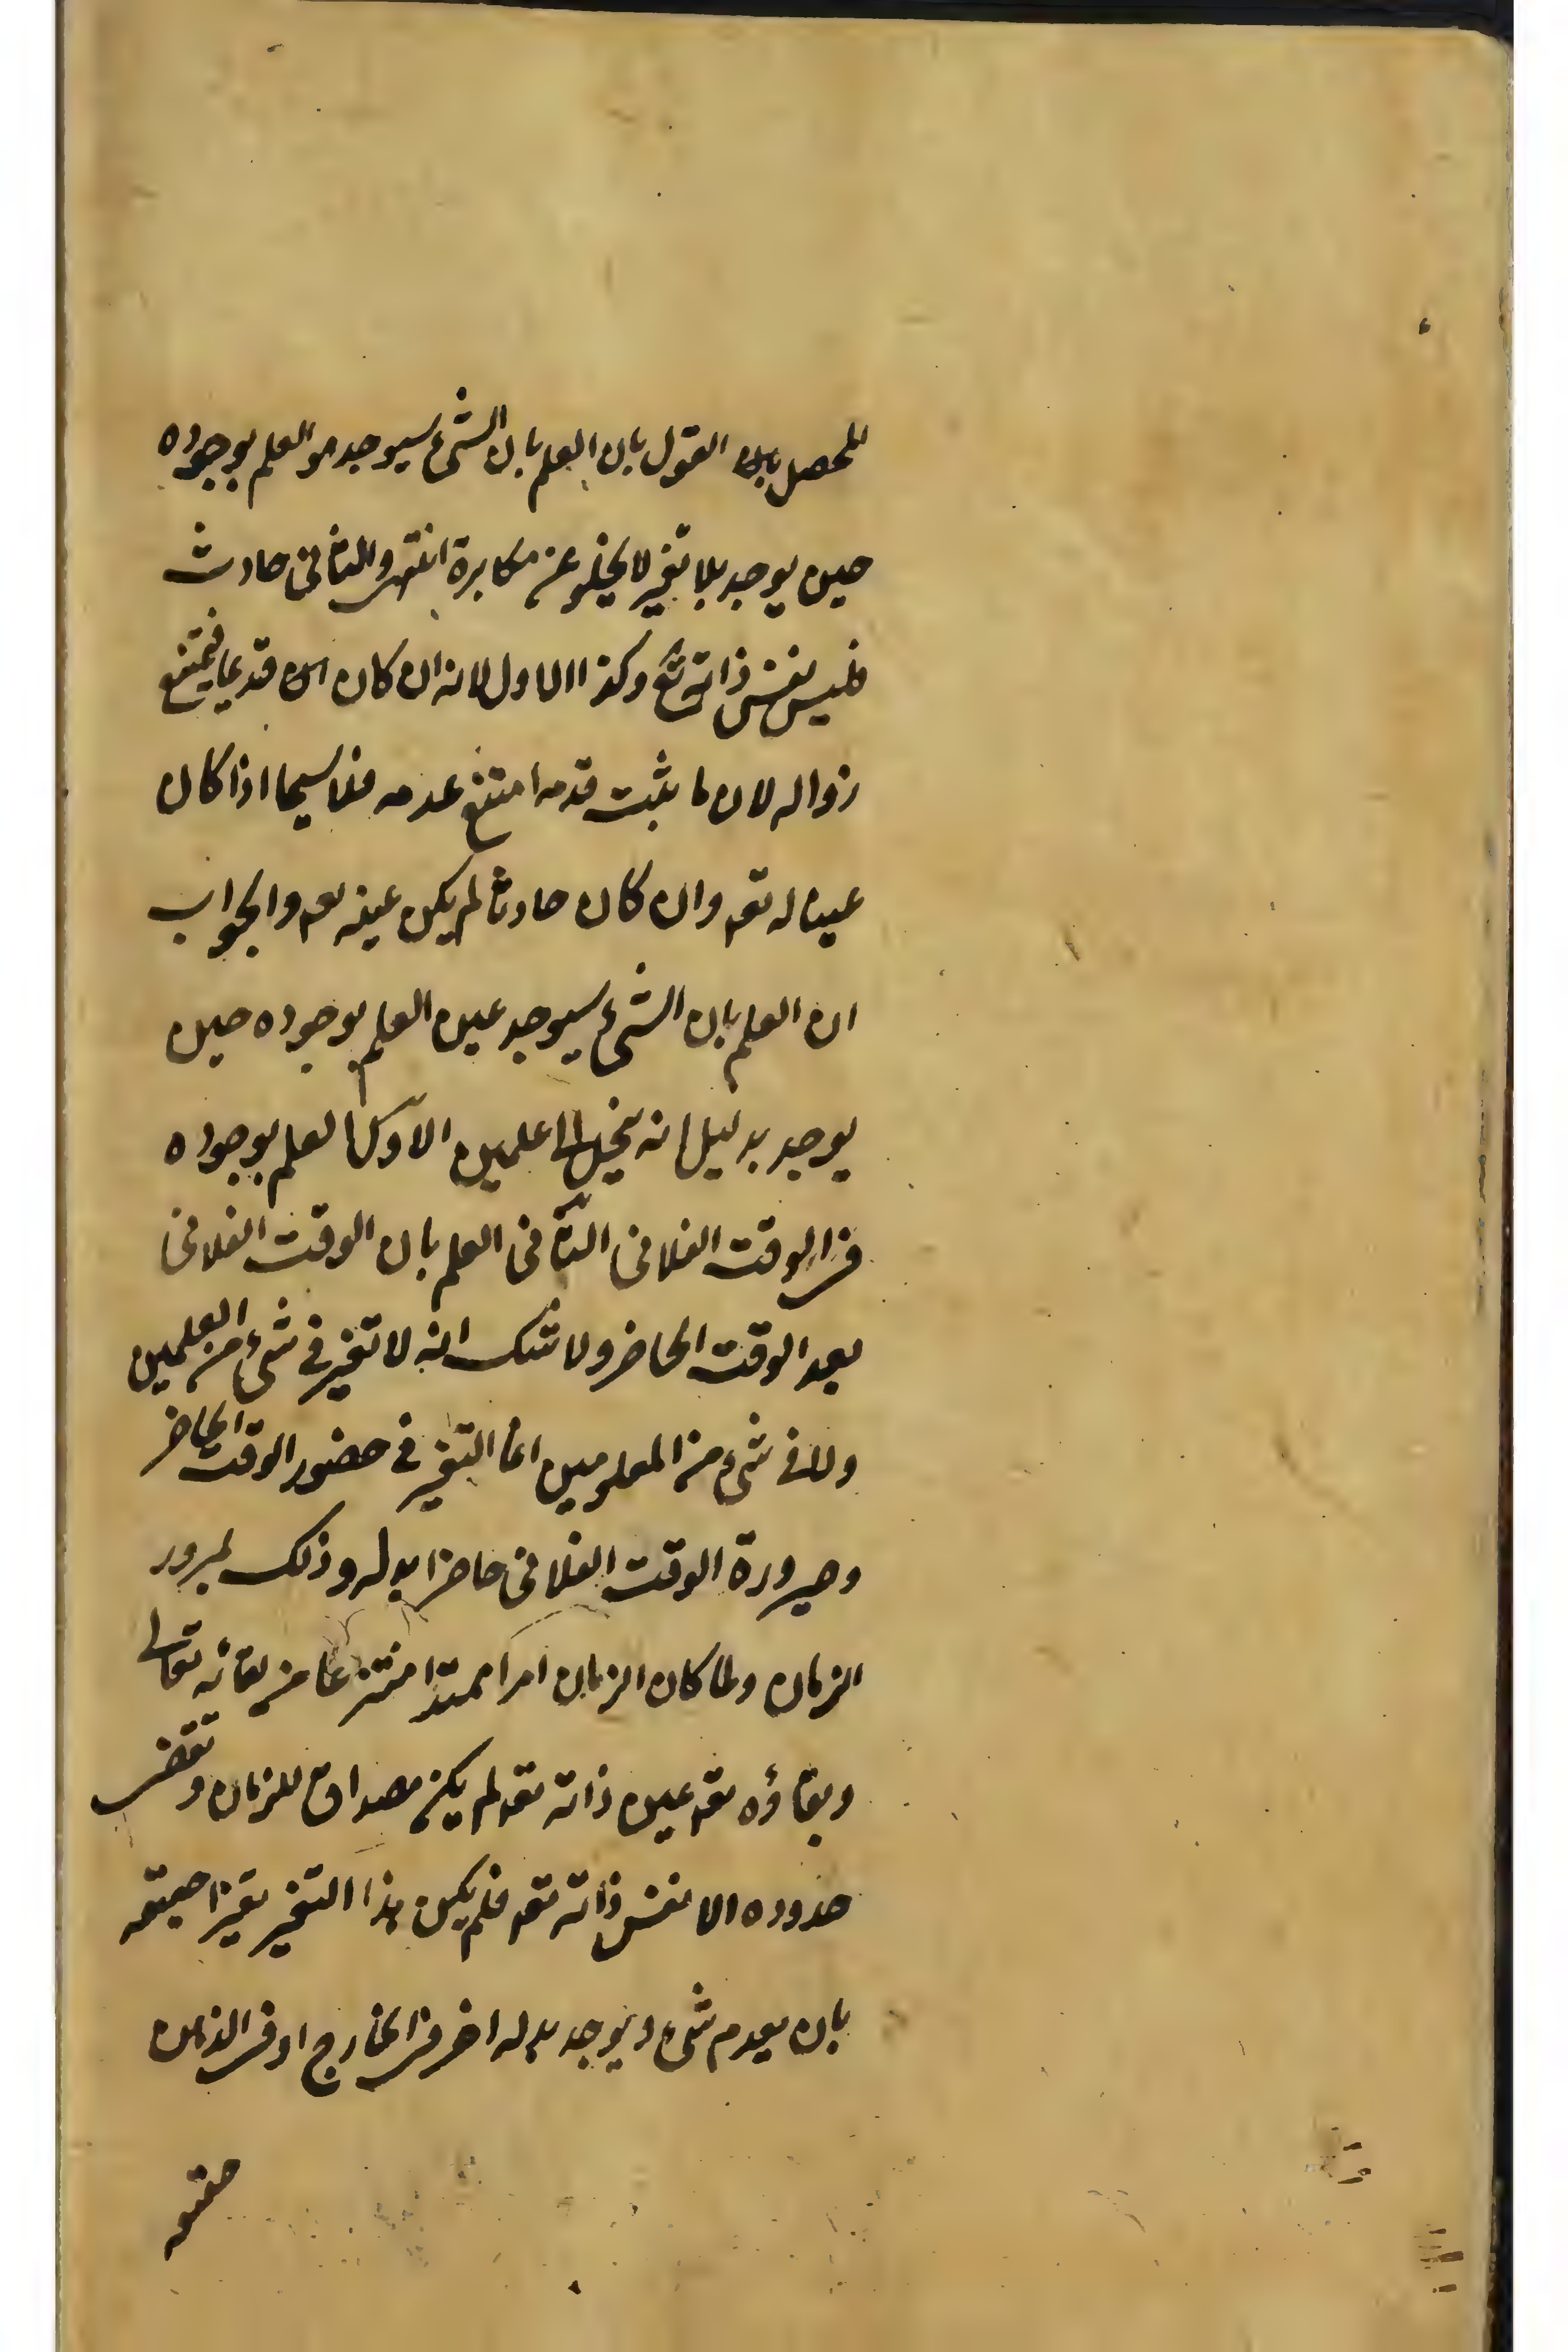 للمحصل بان القول بان العلم بان الشئ سيوجد هو العلم بوجوده
حين يوجد بلا تغير لا يخلو عن مكابرة انتهى والثانى حادث
فليس نفس ذاته تع وكذا الاول لانه ان كان قديما فيمتنع
زواله لان ما ثبت قدمه امتنع عدمه فلا سيما اذا كان
عينا له تعه وان كان حادثا لم يكن عينه تعه والجواب
ان العلم بان الشئ سيوجد عين العلم بوجوده حين
يوجد بدليل انه ينحل الى علمين الاول العلم بوجوده
فى الوقت الفلانى الثانى العلم بان الوقت الفلانى
بعد الوقت الحاضر ولا شك انه لا تغير فى شئ من العلمين
ولا فى شئ من المعلومين انما التغير فى حضور الوقت الحاضر
وصيرورة الوقت الفلانى حاضرا بدله وذلك لمرور
الزمان ولما كان الزمان امرا ممتدا منتزعا من بقائه تعالى
وبقاؤه تعه عين ذاته تعه لم يكن مصداق للزمان وتقضى
حدوده الا نفس ذاته تعه فلم يكن هذا التغير تغيرا حقيقه
بان يعدم شئ ويوجد بدله اخر فى الخارج او فى الذهن